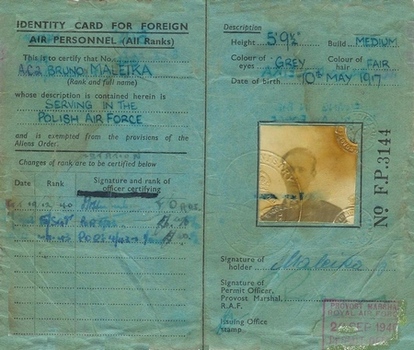 IDENTITY CARD FOR FOREIGN
AIR PERSONNEL (All Ranks)
This is to certify that No.
AC2 BRUNO MALEIKA
(Rank and full name)
whose description is contained herein is
SERVING IN THE
POLISH AIR FORCE
and is exempted from the provisions of the
Aliens Order.
Changes of rank are to be certified below
Date Rank Signature and rank of
officer certifying
Description
Height 5'9½" Build MEDIUM
Colour of eyes GREY Colour of hair FAIR
Date of birth 10th MAY 1917
No F.P.3144
Signature of
holder Maleika
Signature of
Permit Officer,
Provost Marshal,
R.A.F.
Issuing Office
stamp.
PROVOST MARSHAL
ROYAL AIR FORCE
SEP 194